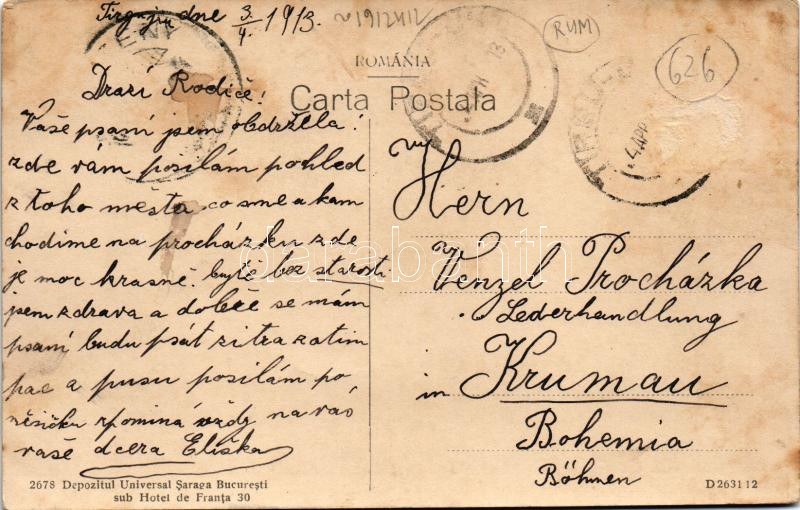 Tirgujiu dne 3/4 1913.
RUM
626
ROMÂNIA
Carta Postala
Drazí Rodiče!
Vaše psaní jsem obdržela!
zde vám posílám pohled
z toho města co sme a kam
chodíme na procházku zde
je moc krasně. buďte bez starosti
jsem zdrava a dobře se mám
psaní budu psát zitra zatim
pac a pusu posílám po
měsíčku spomíná vždy na vás
vaše dcera Eliška
Hern
Venzel Procházka
Lederhandlung
in Krumau
Bohemia
Böhmen
2678 Depozitul Universal Șaraga București
sub Hotel de Franța 30
D 263112
darabanth